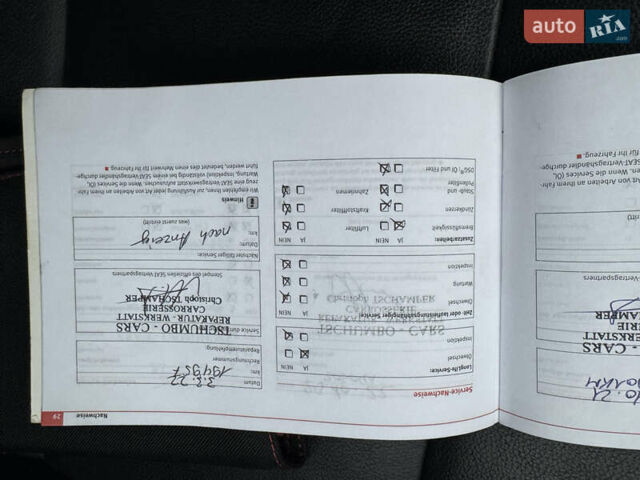 auto RIA .com
Nachweise 29
Service-Nachweise
LongLife-Service:
Ölwechsel
Inspektion
Zeit- oder laufleistungsabhängiger Service:
Ölwechsel
Wartung
Inspektion
Zusatzarbeiten:
JA NEIN JA NEIN
Bremsflüssigkeit Luftfilter
Zündkerzen Kraftstofffilter
Staub- und Zahnriemen
Pollenfilter
DSG® Öl und Filter
Datum
3.3.22
km:
194957
Rechnungsnummer
Reparaturempfang
Service durch
TSCHUMBO - CARS
REPARATUR - WERKSTATT
CARROSSERIE
Christoph TSCHAMPER
Stempel des offiziellen SEAT Vertragspartners
Nächster fälliger Service:
Datum:
nach Anzeig
km:
(was zuerst eintritt)
Hinweis
Wir empfehlen Ihnen, zur Ausführung jeder Art von Arbeiten an Ihrem Fahr-
zeug einen SEAT-Vertragswerkstatt aufzusuchen. Wenn die Services (Öl,
Wartung, Inspektion) vollständig beim SEAT-Vertragshändler durchge-
führt werden, bedeutet dies einen Mehrwert für Ihr Fahrzeug.
10.21
CARS
STATT
ERIE
AMPER
Vertragspartners
Art von Arbeiten an Ihrem Fahr-
Wenn die Services (Öl,
SEAT-Vertragshändler durchge-
für Ihr Fahrzeug.